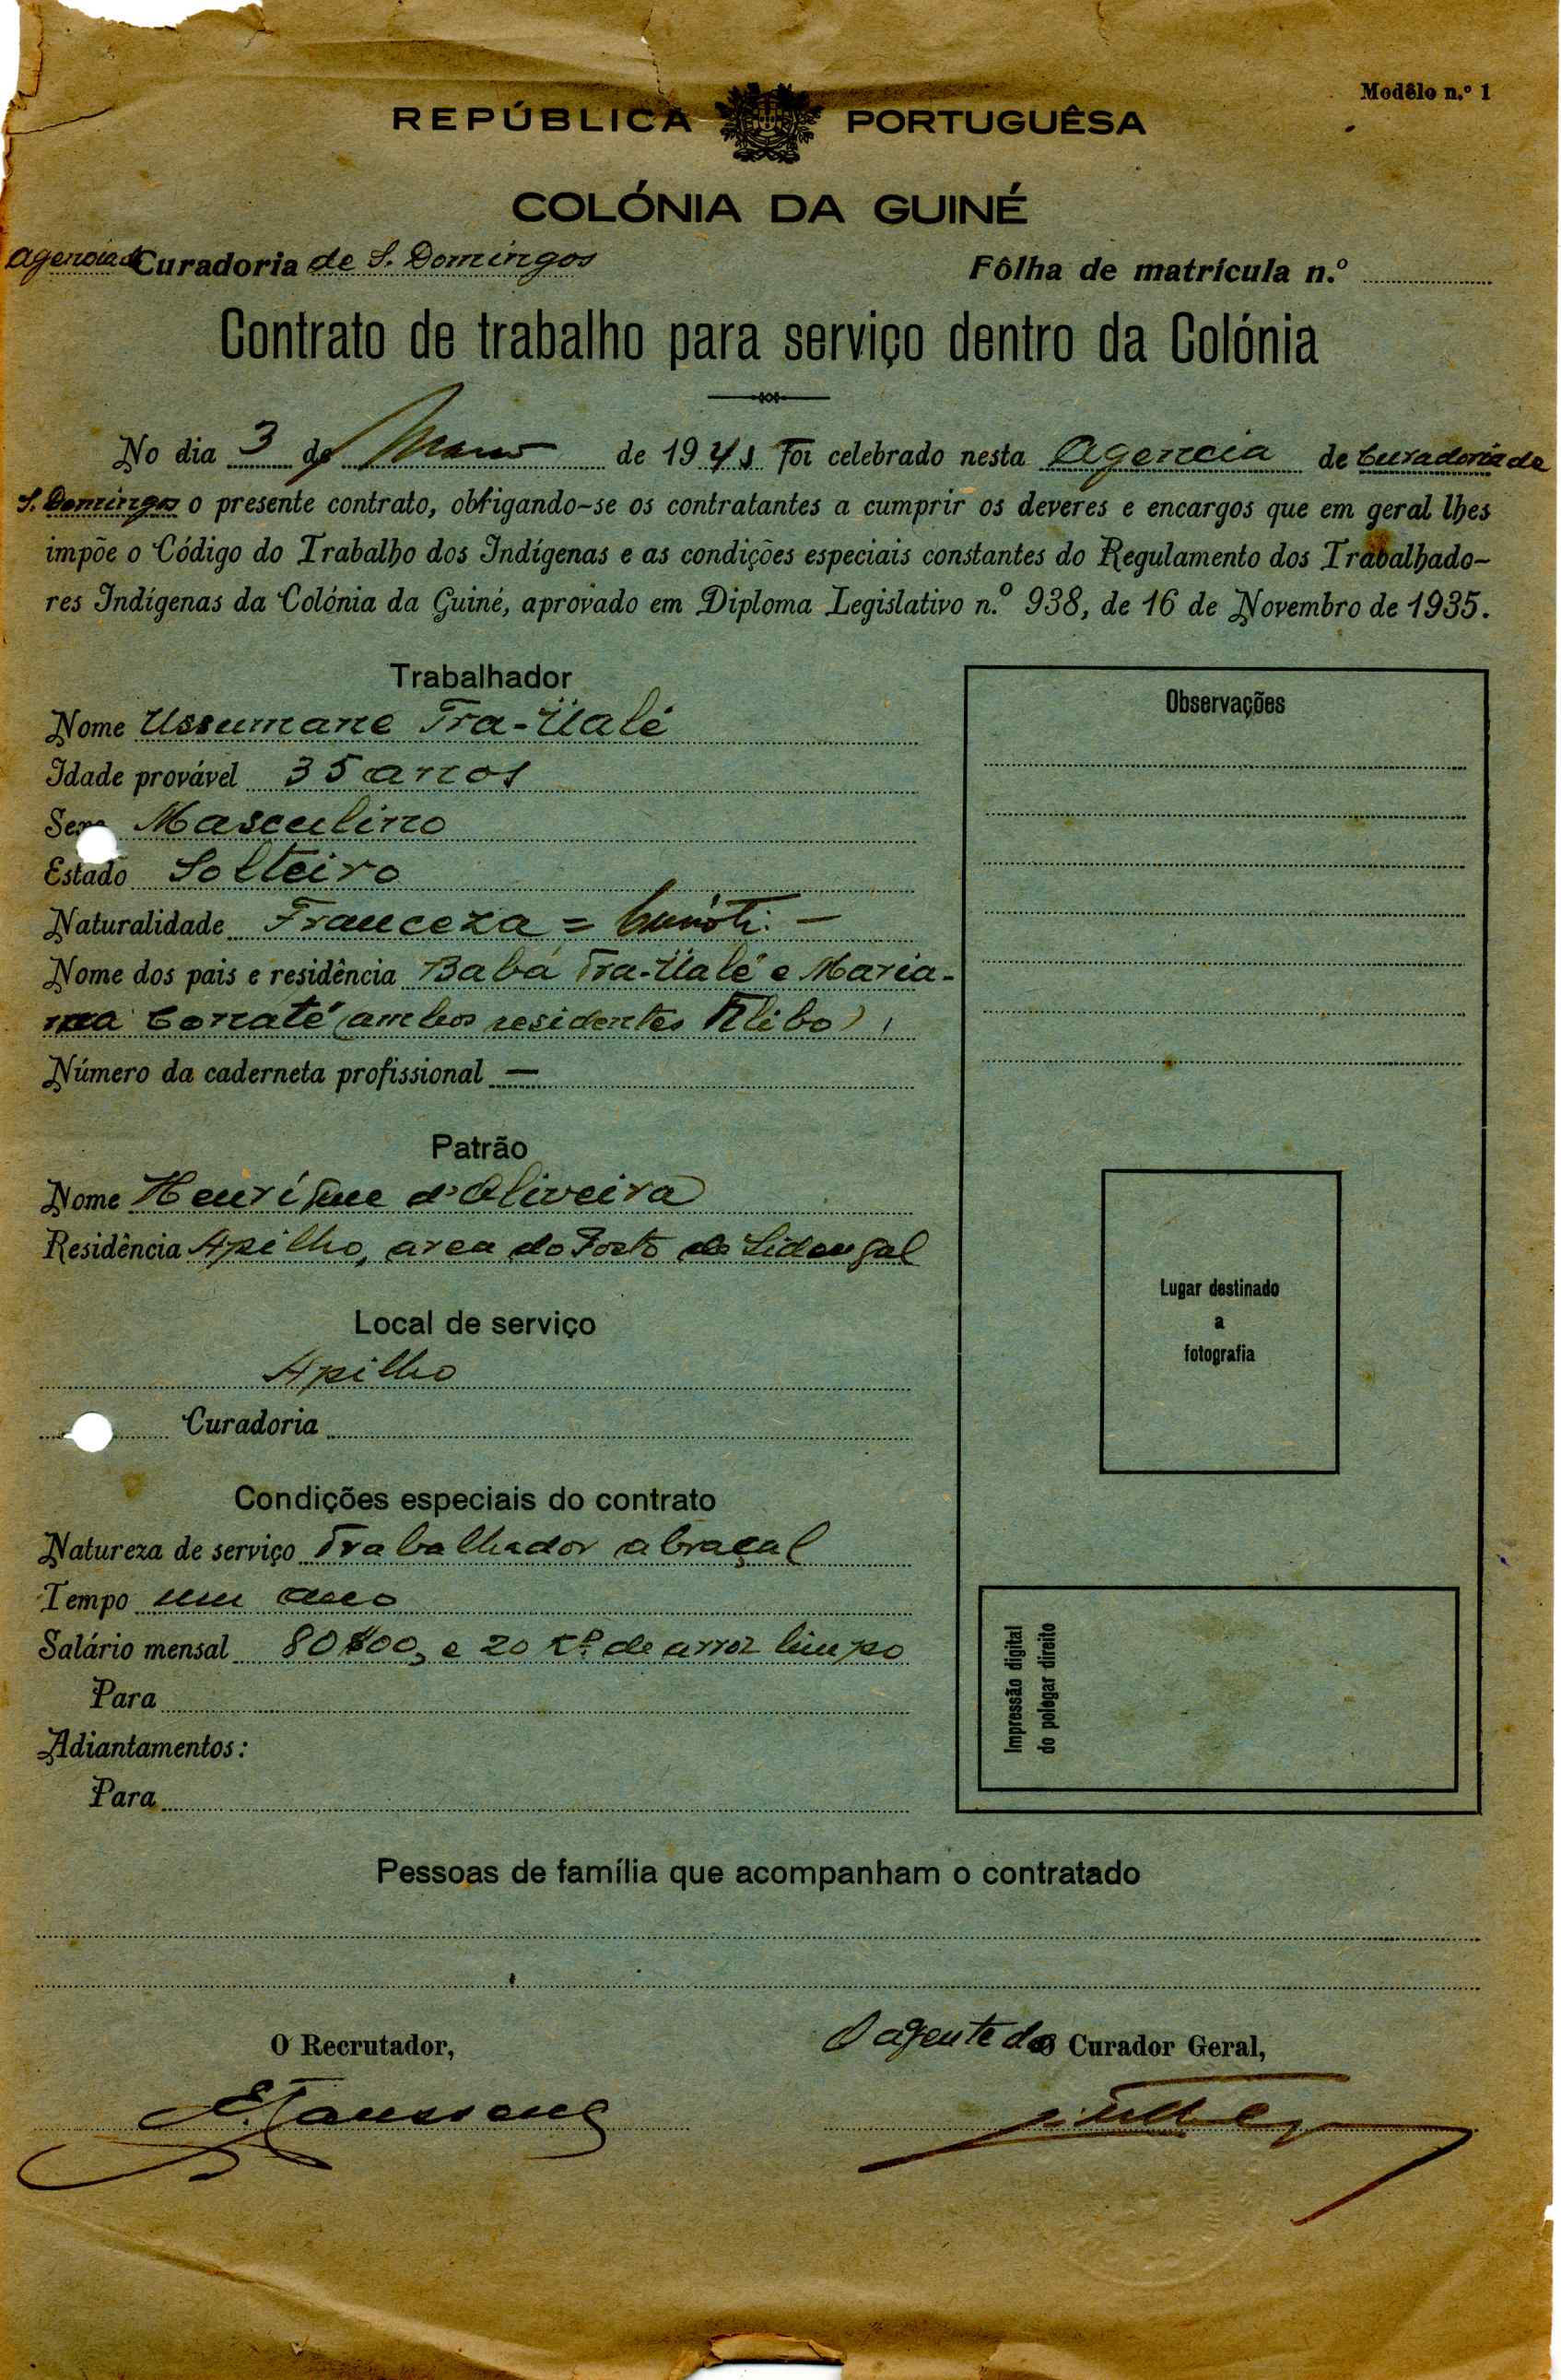 Modêlo n.º 1
REPÚBLICA PORTUGUÊSA
COLÓNIA DA GUINÉ
Agencia da Curadoria de S. Domingos Fôlha de matrícula n.º
Contrato de trabalho para serviço dentro da Colónia
No dia 3 de de 1941 foi celebrado nesta Agencia de Curadoria de
S. Domingos o presente contrato, obrigando-se os contratantes a cumprir os deveres e encargos que em geral lhes
impõe o Código do Trabalho dos Indígenas e as condições especiais constantes do Regulamento dos Trabalhado-
res Indígenas da Colónia da Guiné, aprovado em Diploma Legislativo n.º 938, de 16 de Novembro de 1935.
Trabalhador
Nome Ussumane Tra-Ualé
Idade provável 35 anos
Sexo Masculino
Estado Solteiro
Naturalidade Franceza =
Nome dos pais e residência Babá Tra-Ualé e Maria-
ma Conaté (ambos residentes )
Número da caderneta profissional —
Patrão
Nome Henríque d'Oliveira
Residência Apilho, area do Posto de
Local de serviço
Apilho
Curadoria
Condições especiais do contrato
Natureza de serviço Trabalhador abraçal
Tempo um ano
Salário mensal 80$00, e 20 Kº de arroz limpo
Para
Adiantamentos:
Para
Observações
Lugar destinado
a
fotografia
Impressão digital
do polegar direito
Pessoas de família que acompanham o contratado
O Recrutador,
O agente do Curador Geral,